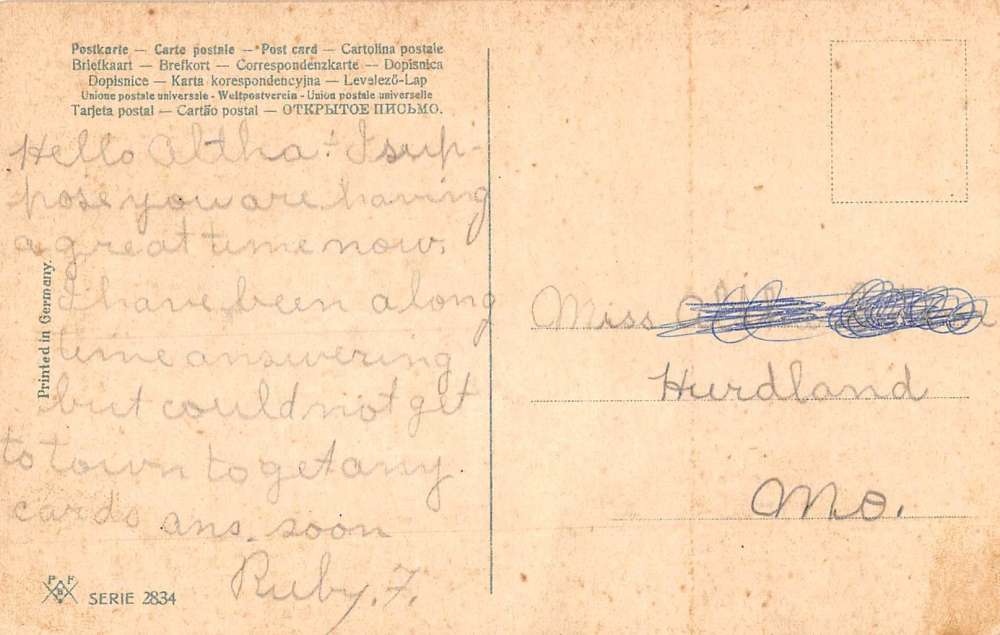 Postkarte — Carte postale — Post card — Cartolina postale
Briefkaart — Brefkort — Correspondenzkarte — Dopisnica
Dopisnice — Karta korespondencyjna — Levelező-Lap
Unione postale universale - Weltpostverein - Union postale universelle
Tarjeta postal — Cartão postal — ОТКРЫТОЕ ПИСЬМО.
Hello Altha: I sup-
pose you are having
a great time now.
I have been a long
time answering
but could not get
to town to get any
cards ans. soon
Ruby. F.
Printed in Germany.
P F
B
SERIE 2834
Miss
Hurdland
Mo.